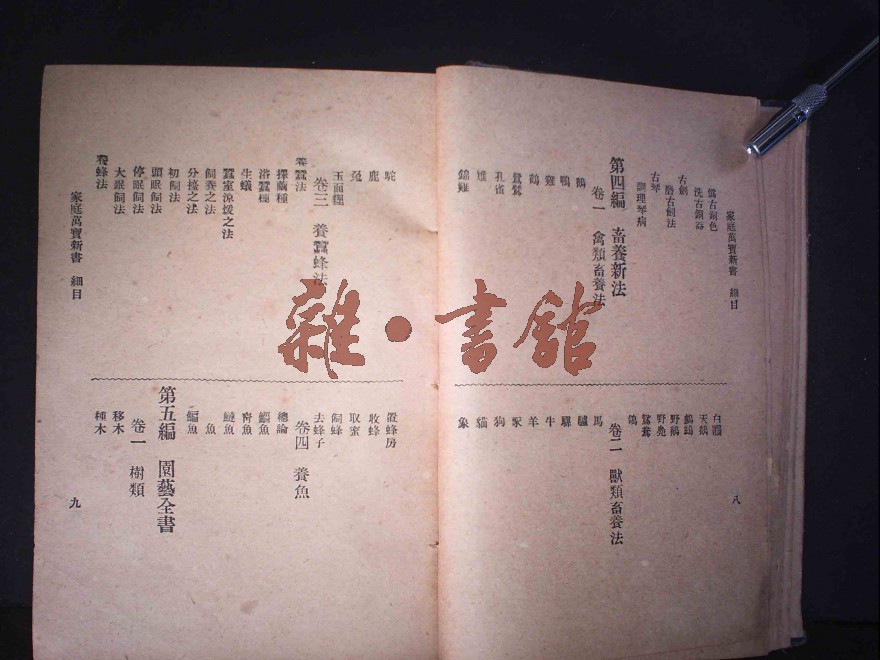 家庭萬寶新書 細目
僞古銅色
洗古銅器
古劍
磨古劍法
古琴
調理琴病
第四編 畜養新法
卷一 禽類畜養法
鵝
鴨
雞
鶴
鴛鴦
孔雀
雉
錦雞
白鷴
天鵝
野鵝
野鳧
鴛鴦
鴿
卷二 獸類畜養法
馬
驢
騾
牛
羊
豕
狗
貓
象
八
駝
鹿
兔
玉面貍
卷三 養蠶蜂法
養蠶法
擇繭種
浴蠶種
生蟻
蠶室涼煖之法
飼養之法
分擡之法
初飼法
頭眠飼法
停眠飼法
大眠飼法
養蜂法
置蜂房
收蜂
取蜜
飼蜂
去蜂子
卷四 養魚
總論
鱸魚
鰱魚
鯿魚
第五編 園藝全書
卷一 樹類
移木
種木
家庭萬寶新書 細目
九
雜·書館